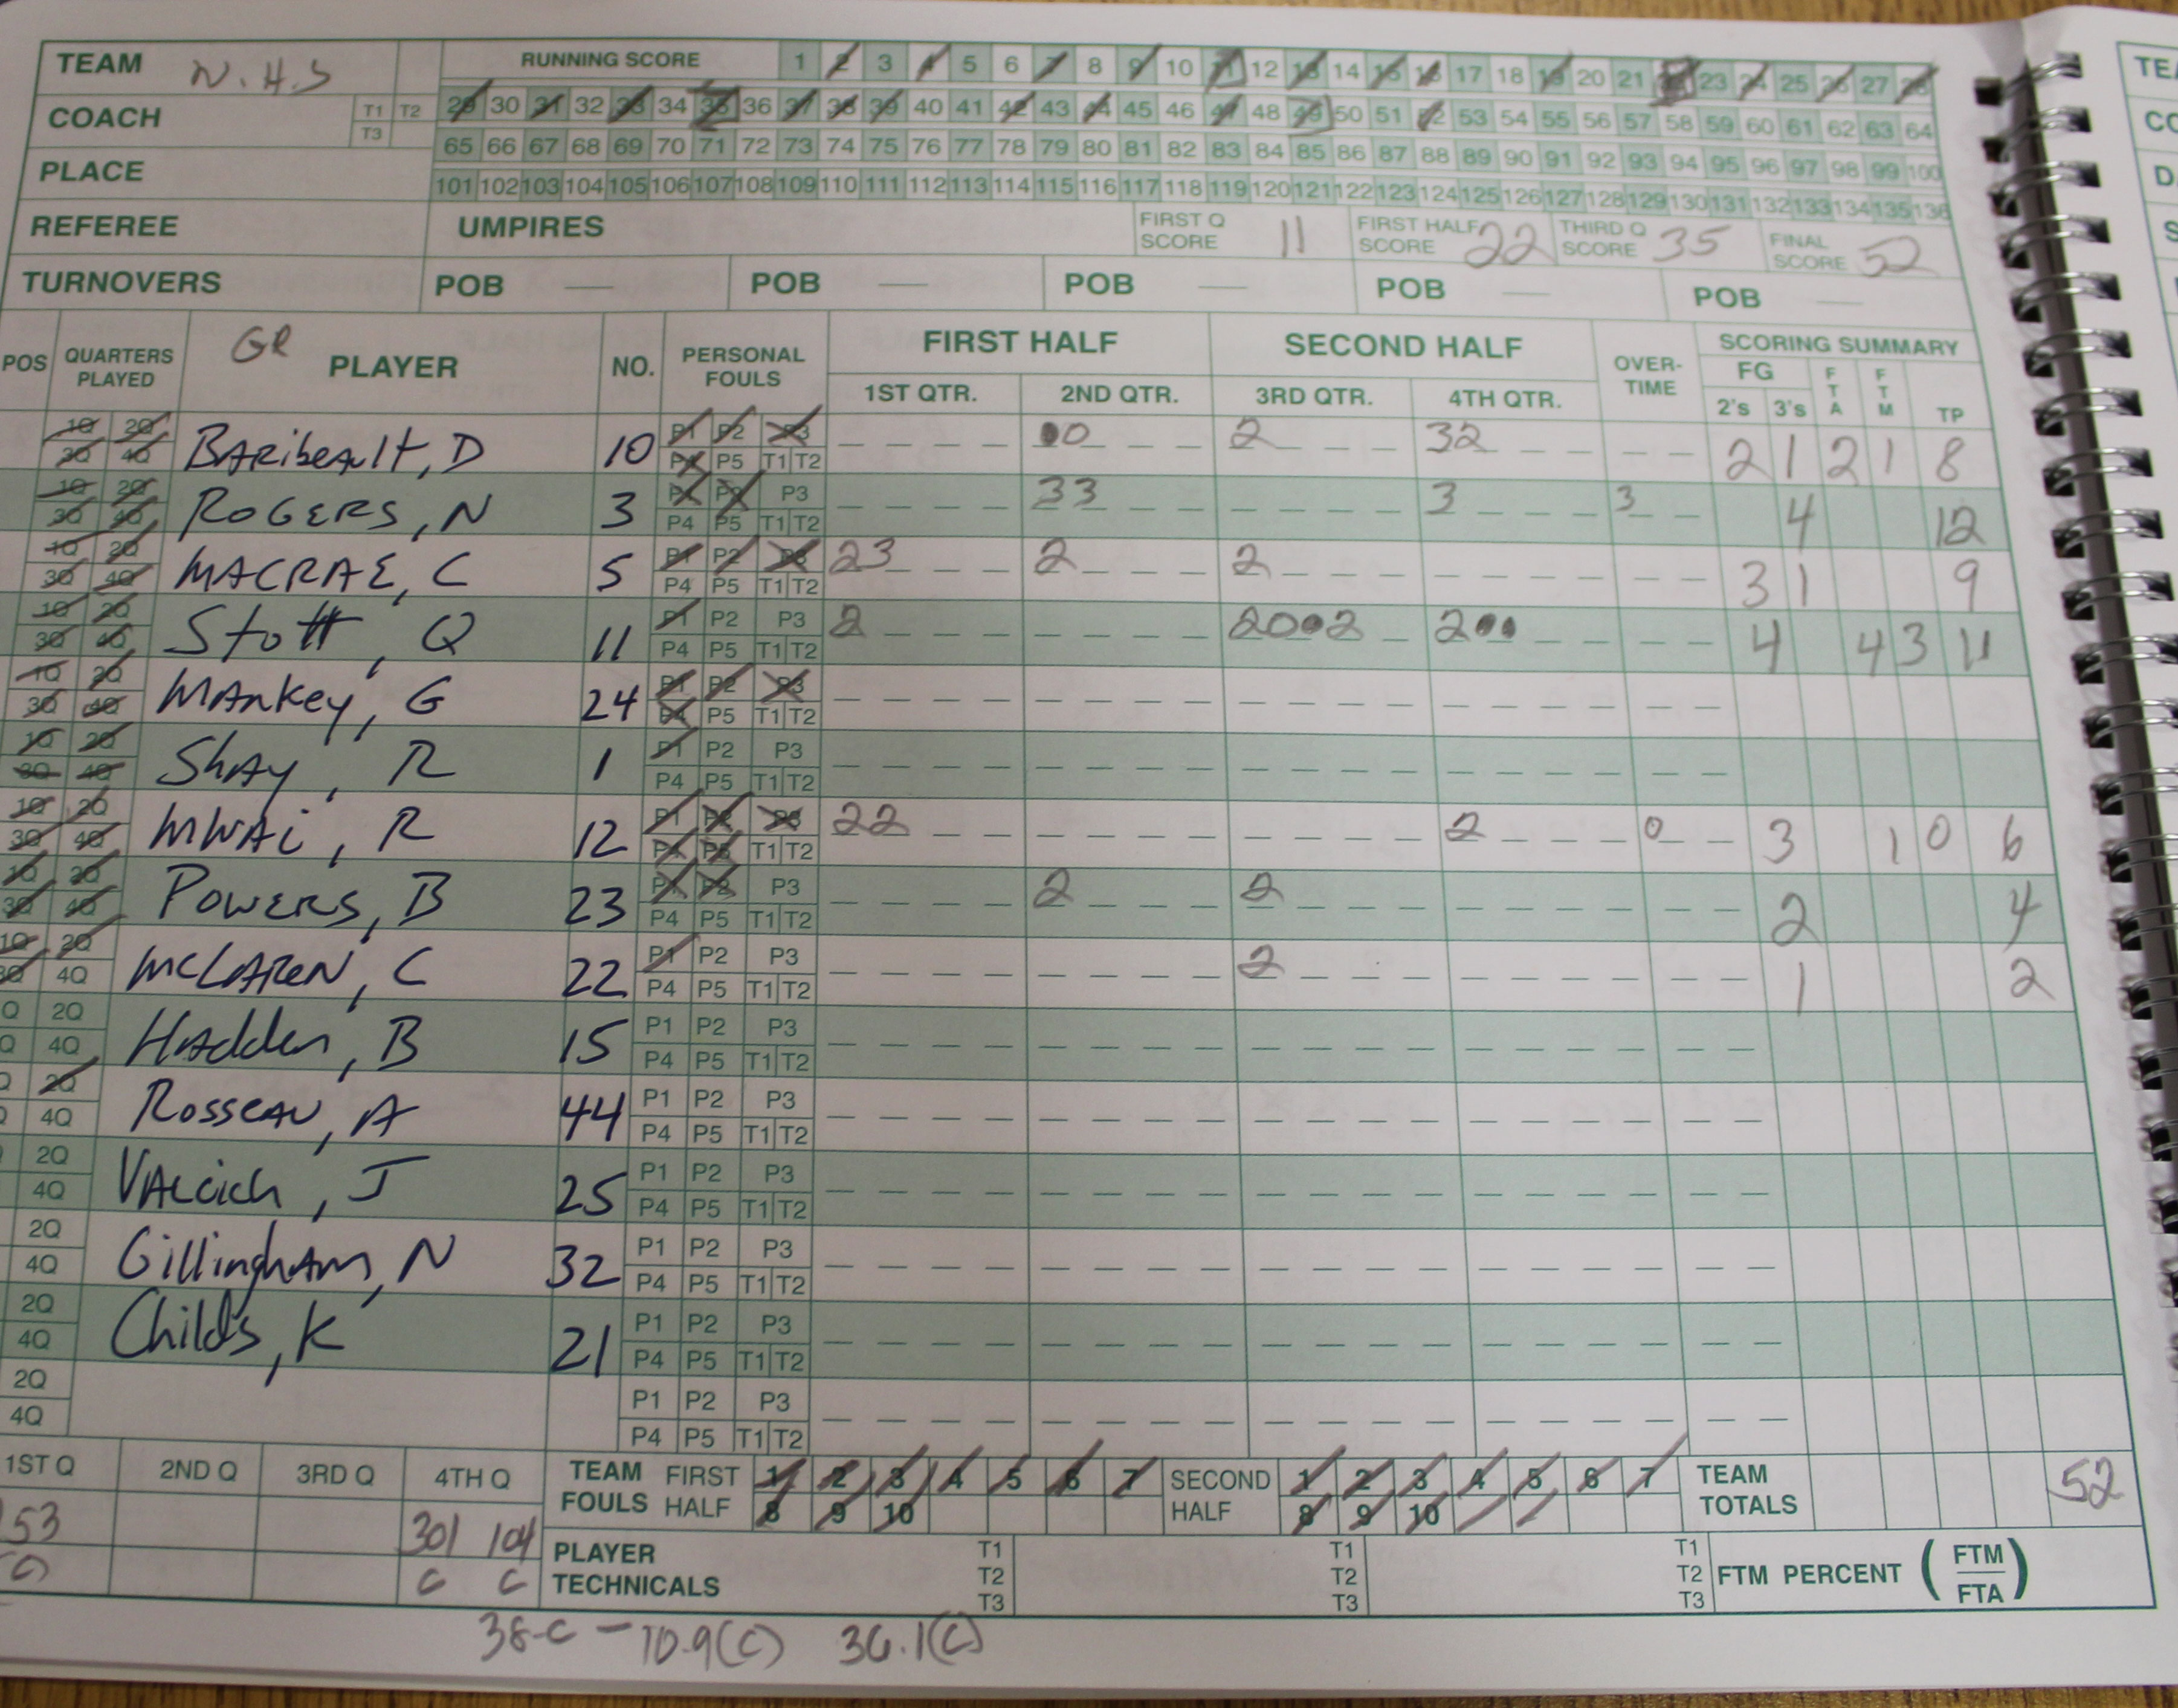 TEAM N.H.S RUNNING SCORE 1 2 3 4 5 6 7 8 9 10 11 12 13 14 15 16 17 18 19 20 21 22 23 24 25 26 27 28
COACH T1 T2 T3 29 30 31 32 33 34 35 36 37 38 39 40 41 42 43 44 45 46 47 48 49 50 51 52 53 54 55 56 57 58 59 60 61 62 63 64
65 66 67 68 69 70 71 72 73 74 75 76 77 78 79 80 81 82 83 84 85 86 87 88 89 90 91 92 93 94 95 96 97 98 99 100
PLACE 101 102 103 104 105 106 107 108 109 110 111 112 113 114 115 116 117 118 119 120 121 122 123 124 125 126 127 128 129 130 131 132 133 134 135 136
REFEREE UMPIRES FIRST Q SCORE 11 FIRST HALF SCORE 22 THIRD Q SCORE 35 FINAL SCORE 52
TURNOVERS POB — POB — POB — POB — POB —
POS QUARTERS PLAYED GR PLAYER NO. PERSONAL FOULS FIRST HALF SECOND HALF OVER-TIME SCORING SUMMARY
1ST QTR. 2ND QTR. 3RD QTR. 4TH QTR. FG 2's 3's FTA FTM TP
1Q 2Q 3Q 4Q BARibeault, D 10 P1 P2 P3 P4 P5 T1 T2 0 2 32 2 1 2 1 8
1Q 2Q 3Q 4Q ROGERS, N 3 P1 P2 P3 P4 P5 T1 T2 33 3 3 4 12
1Q 2Q 3Q 4Q MACRAE, C 5 P1 P2 P3 P4 P5 T1 T2 23 2 2 3 1 9
1Q 2Q 3Q 4Q Stott, Q 11 P1 P2 P3 P4 P5 T1 T2 2 20•2 2•• 4 4 3 11
1Q 2Q 3Q 4Q MAnkey, G 24 P1 P2 P3 P4 P5 T1 T2
1Q 2Q 3Q 4Q ShAy, R 1 P1 P2 P3 P4 P5 T1 T2
1Q 2Q 3Q 4Q MWAi, R 12 P1 P2 P3 P4 P5 T1 T2 22 2 0 3 1 0 6
1Q 2Q 3Q 4Q POWERS, B 23 P1 P2 P3 P4 P5 T1 T2 2 2 2 4
1Q 2Q 3Q 4Q McLAREN, C 22 P1 P2 P3 P4 P5 T1 T2 2 1 2
Q 2Q Q 4Q HAdden, B 15 P1 P2 P3 P4 P5 T1 T2
2Q 4Q ROSSEAU, A 44 P1 P2 P3 P4 P5 T1 T2
2Q 4Q VALcich, J 25 P1 P2 P3 P4 P5 T1 T2
2Q 4Q GillinghAm, N 32 P1 P2 P3 P4 P5 T1 T2
2Q 4Q Childs, K 21 P1 P2 P3 P4 P5 T1 T2
2Q 4Q P1 P2 P3 P4 P5 T1 T2
1ST Q 2ND Q 3RD Q 4TH Q TEAM FOULS FIRST HALF 1 2 3 4 5 6 7 8 9 10 SECOND HALF 1 2 3 4 5 6 7 8 9 10 TEAM TOTALS 52
53 301 104
C C PLAYER TECHNICALS T1 T2 T3 T1 T2 T3 T1 T2 T3 FTM PERCENT (FTM/FTA)
38-C – 10.9(C) 36.1(C)